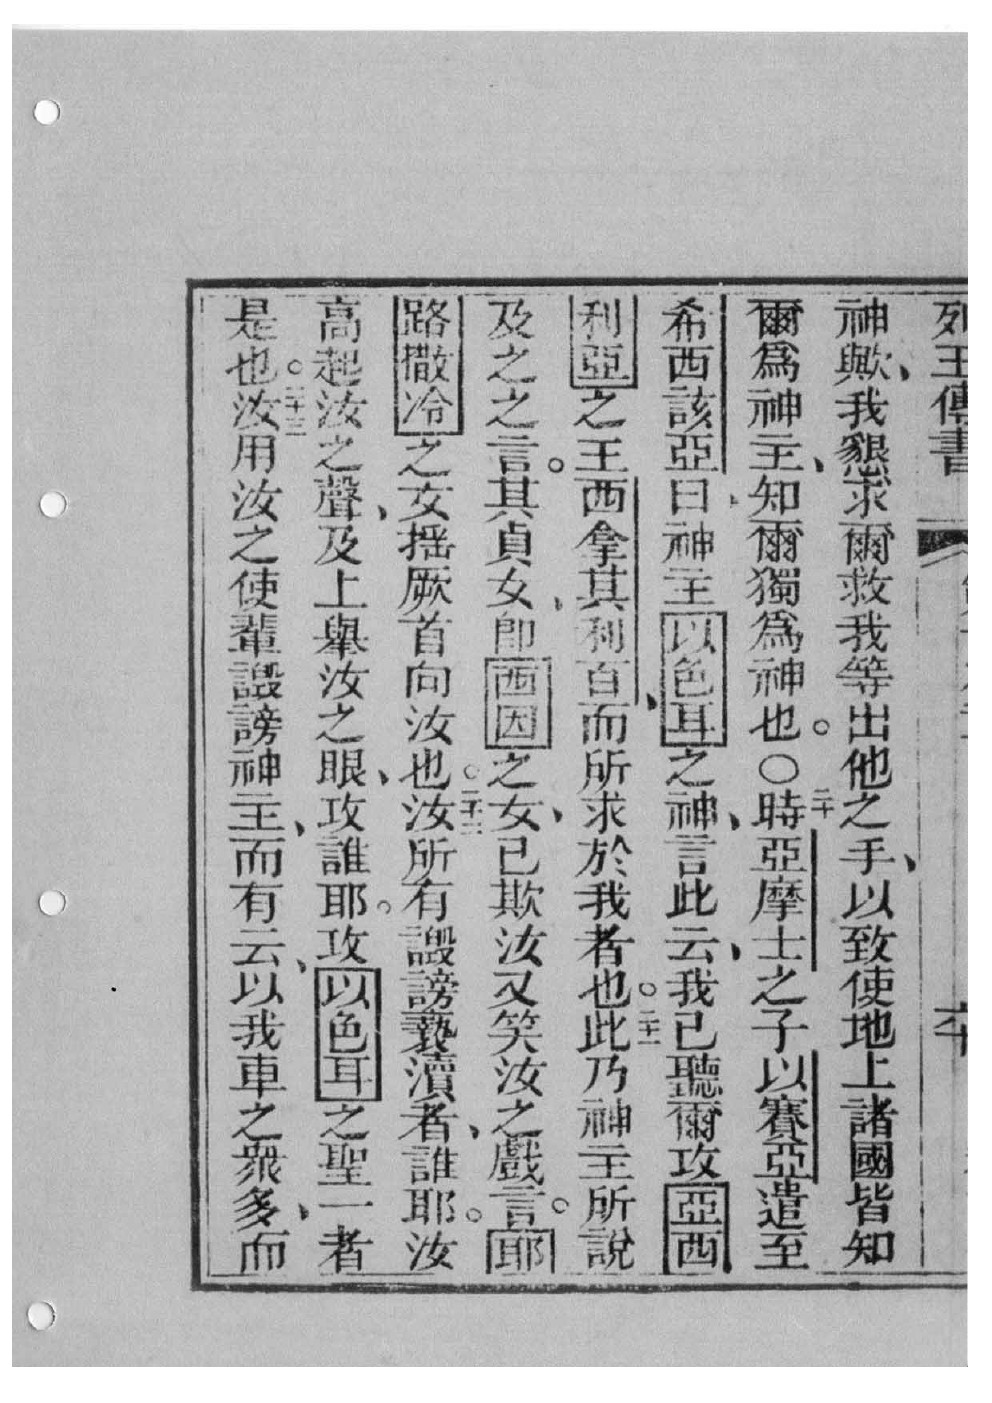 列王傳書
神歟、我懇求爾救我等出他之手、以致使地上諸國皆知
爾爲神主、知爾獨爲神也。〇二十時亞摩士之子以賽亞遣至
希西該亞曰神主以色耳之神、言此云、我已聽爾攻亞西
利亞之王西拿其利百、而所求於我者也。二十一此乃神主所說
及之之言。其貞女、即西因之女、已欺汝又笑汝之戲言。耶
路撒冷之女搖厥首向汝也。二十二汝所有譭謗褻瀆者、誰耶。汝
高起汝之聲、及上舉汝之眼、攻誰耶。攻以色耳之聖一者
是也。二十三汝用汝之使輩譭謗神主、而有云、以我車之衆多、而